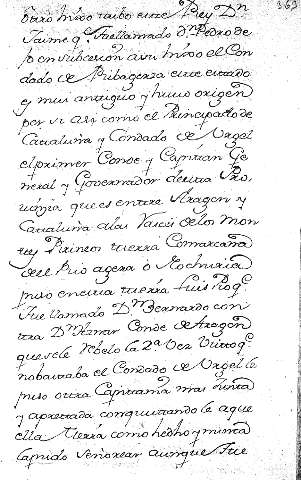 369
otro hijo tubo este Rey Dn
Jaime q. fue llamado Dn Pedro de
po en subcesion a su hijo el Con
dado de Ribagorza este estado
es mui antiguo y tuvo origen
por si assi como el Principado de
Cataluña y Condado de Urgel
el primer Conde y Capitan Ge
neral y Governador de esta Pro
vincia que es entre Aragon y
Cataluña a las Vasos de los Mon
tes Pirineos tierra Comarcana
de el Rio agera o Nochuria
puso en esta tierra Luis q.
fue llamado Dn Bernardo con
tra Dn Aznar Conde de Aragon
que se le rebelo la 2a vez visto q.
no bastaba el Condado de Urgel le
puso otra Capitania mas junta
y apretada conquistando le aque
lla tierra como hecho y nunca
la pudo señorear aunque fue